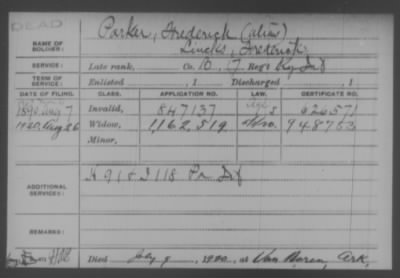 DEAD
NAME OF SOLDIER: Parker, Frederick (alias)
Frederick
SERVICE: Late rank, Co. Reg't Ky Inf
TERM OF SERVICE: Enlisted , 1 Discharged , 1
DATE OF FILING. CLASS. APPLICATION NO. LAW. CERTIFICATE NO.
1890 Aug 7 Invalid, 847137 626571
1920, Aug 26 Widow, 1,162,519 948753
Minor,
ADDITIONAL SERVICES: H 91 & I 118 Pa Inf
REMARKS:
Died July 9, 1920, at Van Buren, Ark,